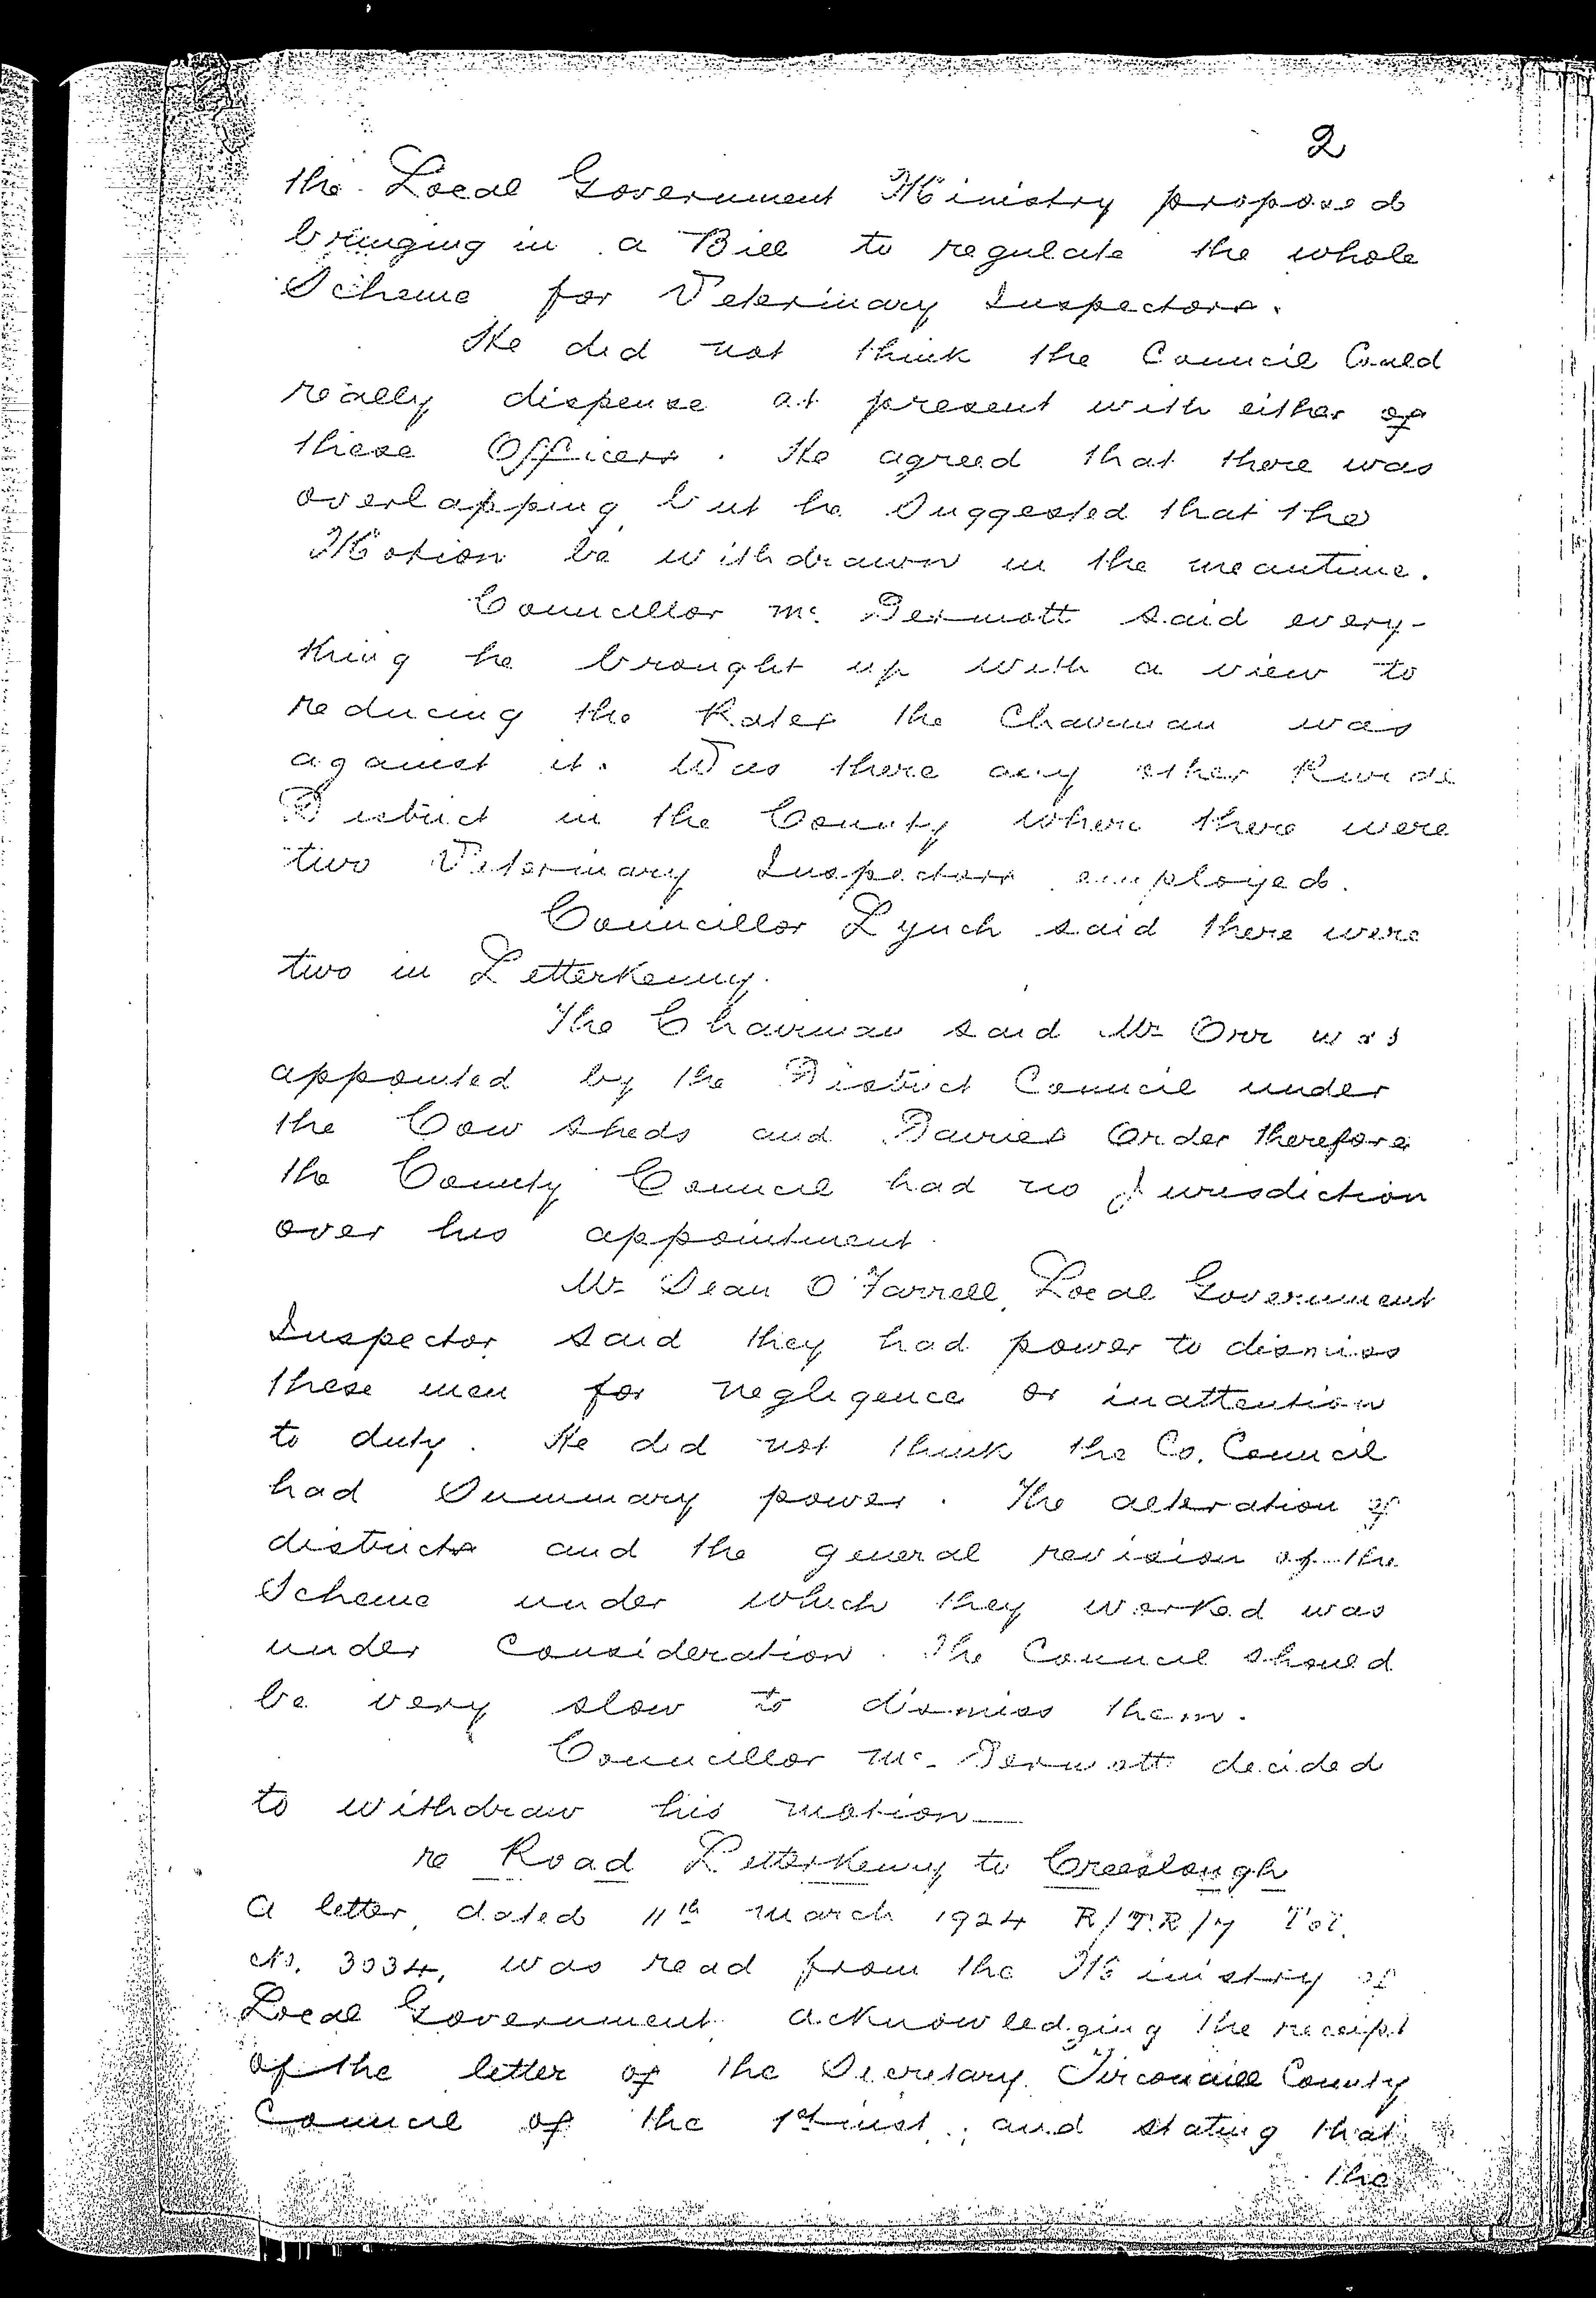 2
the Local Government Ministry proposed
bringing in a Bill to regulate the whole
Scheme for Veterinary Inspectors.
He did not think the Council Could
really dispense at present with either of
these Officers. He agreed that there was
overlapping but he Suggested that the
Motion be withdrawn in the meantime.
Councillor Mc. Dermott said every-
thing he brought up with a view to
reducing the Rates the Chairman was
against it. Was there any other Rural
District in the County where there were
two Veterinary Inspectors employed.
Councillor Lynch said there were
two in Letterkenny.
The Chairman said Mr Orr was
appointed by the District Council under
the Cow sheds and Dairies Order therefore
the County Council had no Jurisdiction
over his appointment.
Mr Dean O'Farrell, Local Government
Inspector said they had power to dismiss
these men for negligence or inattention
to duty. He did not think the Co. Council
had Summary power. The alteration of
districts and the general revision of the
Scheme under which they worked was
under Consideration. The Council should
be very slow to dismiss them.
Councillor Mc. Dermott decided
to withdraw his motion
re Road Letterkenny to Creeslough
A letter, dated 11th March 1924 R/T.R/7
No. 3034, was read from the Ministry of
Local Government acknowledging the receipt
of the letter of the Secretary Tirconaill County
Council of the 1st inst., and stating that
the